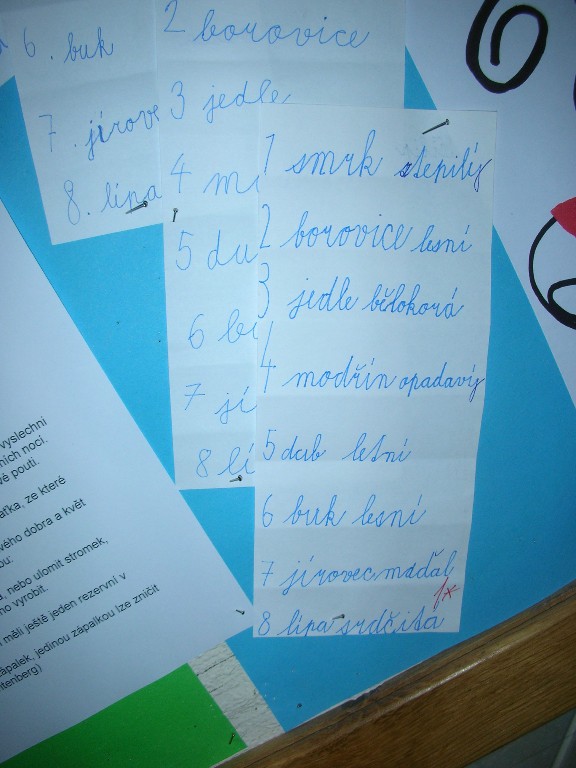 6. buk
7. jírove
8. lípa
2 borovice
3 jedle
4 m
5 du
6 bu
7 jí
8 lí
1 smrk stepilý
2 borovice lesní
3 jedle bělokorá
4 modřín opadavý
5 dub letní
6 buk lesní
7 jírovec maďal
8 lípa srdčita
1*
vyslechni
ních nocí.
vé pouti.
ařka, ze které
vého dobra a květ
ou:
, nebo ulomit stromek,
no vyrobit.
měli ještě jeden rezervní v
ápalek, jedinou zápalkou lze zničit
tenberg)